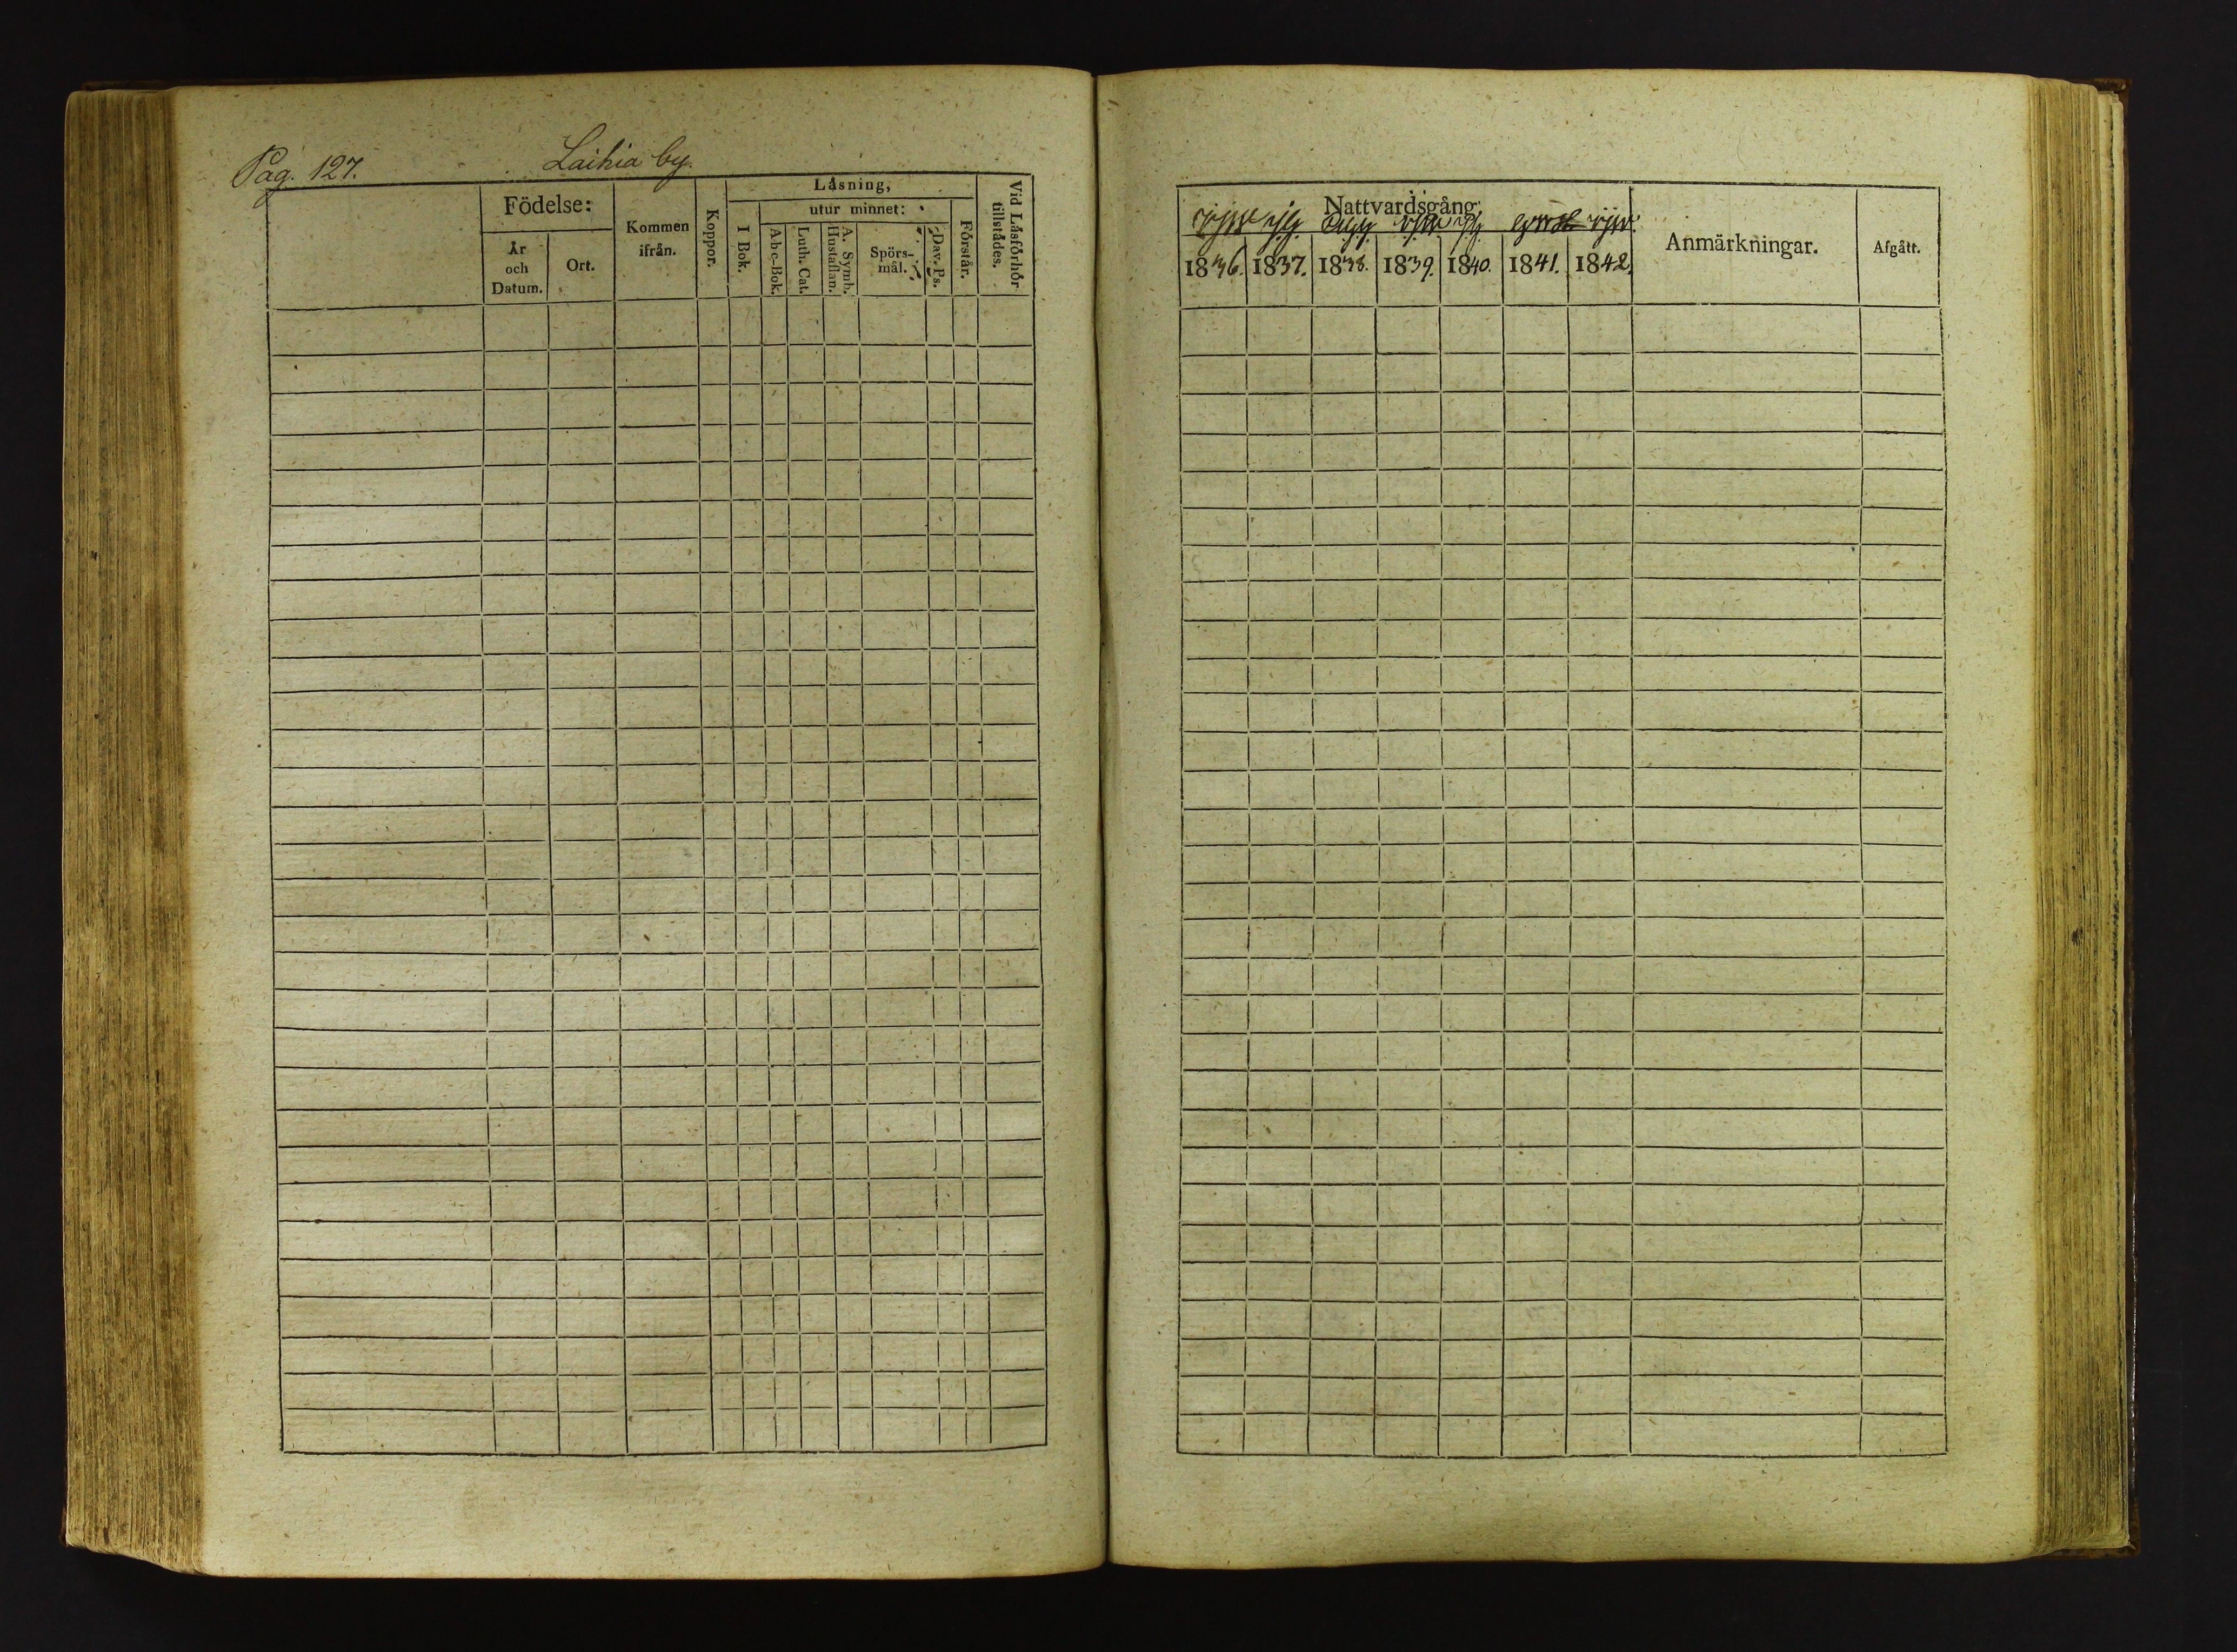 Pag. 127.
Laihia by.
Födelse:
År
och
Datum.
Ort.
Kommen
ifrån.
Koppor.
Låsning,
I Bok.
utur minnet:
A-b-c-Bok.
Luth. Cat.
A. Symb.
Hustaflan.
Spörs-
mål.
Dav. Ps.
Förstår.
Vid Låsförhör
tillstådes.
Nattvardsgång:
1836. 1837. 1838. 1839. 1840. 1841. 1842.
Anmärkningar.
Afgått.